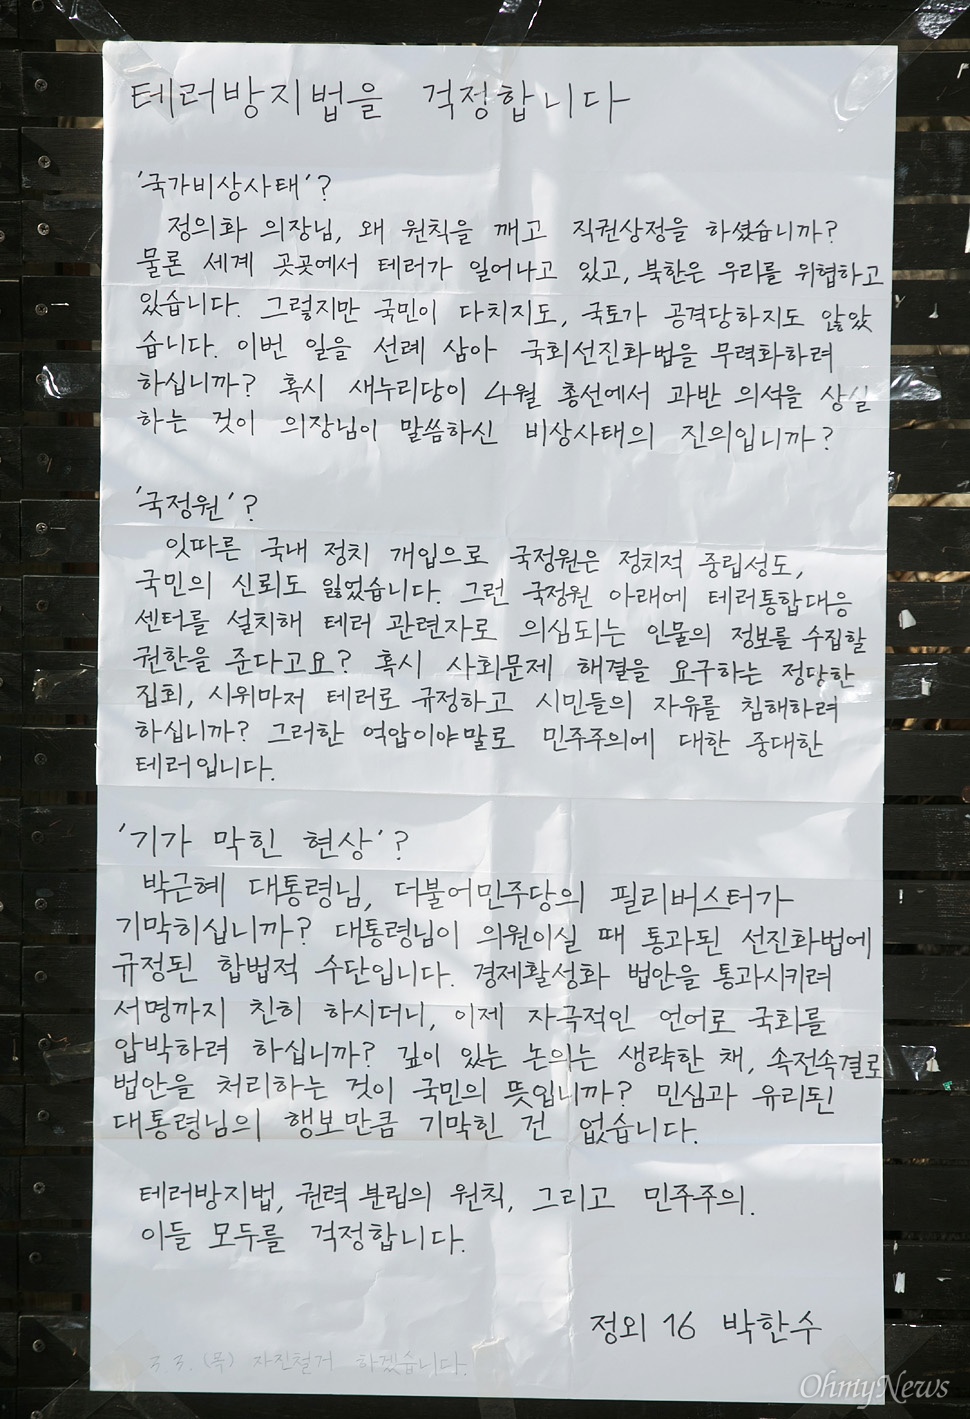 테러방지법을 걱정합니다
'국가비상사태'?
정의화 의장님, 왜 원칙을 깨고 직권상정을 하셨습니까?
물론 세계 곳곳에서 테러가 일어나고 있고, 북한은 우리를 위협하고
있습니다. 그렇지만 국민이 다치지도, 국토가 공격당하지도 않았
습니다. 이번 일을 선례 삼아 국회선진화법을 무력화하려
하십니까? 혹시 새누리당이 4월 총선에서 과반 의석을 상실
하는 것이 의장님이 말씀하신 비상사태의 진의입니까?
'국정원'?
잇따른 국내 정치 개입으로 국정원은 정치적 중립성도,
국민의 신뢰도 잃었습니다. 그런 국정원 아래에 테러통합대응
센터를 설치해 테러 관련자로 의심되는 인물의 정보를 수집할
권한을 준다고요? 혹시 사회문제 해결을 요구하는 정당한
집회, 시위마저 테러로 규정하고 시민들의 자유를 침해하려
하십니까? 그러한 억압이야말로 민주주의에 대한 중대한
테러입니다.
'기가 막힌 현상'?
박근혜 대통령님, 더불어민주당의 필리버스터가
기막히십니까? 대통령님이 의원이실 때 통과된 선진화법에
규정된 합법적 수단입니다. 경제활성화 법안을 통과시키려
서명까지 친히 하시더니, 이제 자극적인 언어로 국회를
압박하려 하십니까? 깊이 있는 논의는 생략한 채, 속전속결로
법안을 처리하는 것이 국민의 뜻입니까? 민심과 유리된
대통령님의 행보만큼 기막힌 건 없습니다.
테러방지법, 권력 분립의 원칙, 그리고 민주주의.
이들 모두를 걱정합니다.
정외 16 박한수
3.3.(목) 자진철거 하겠습니다.
OhmyNews